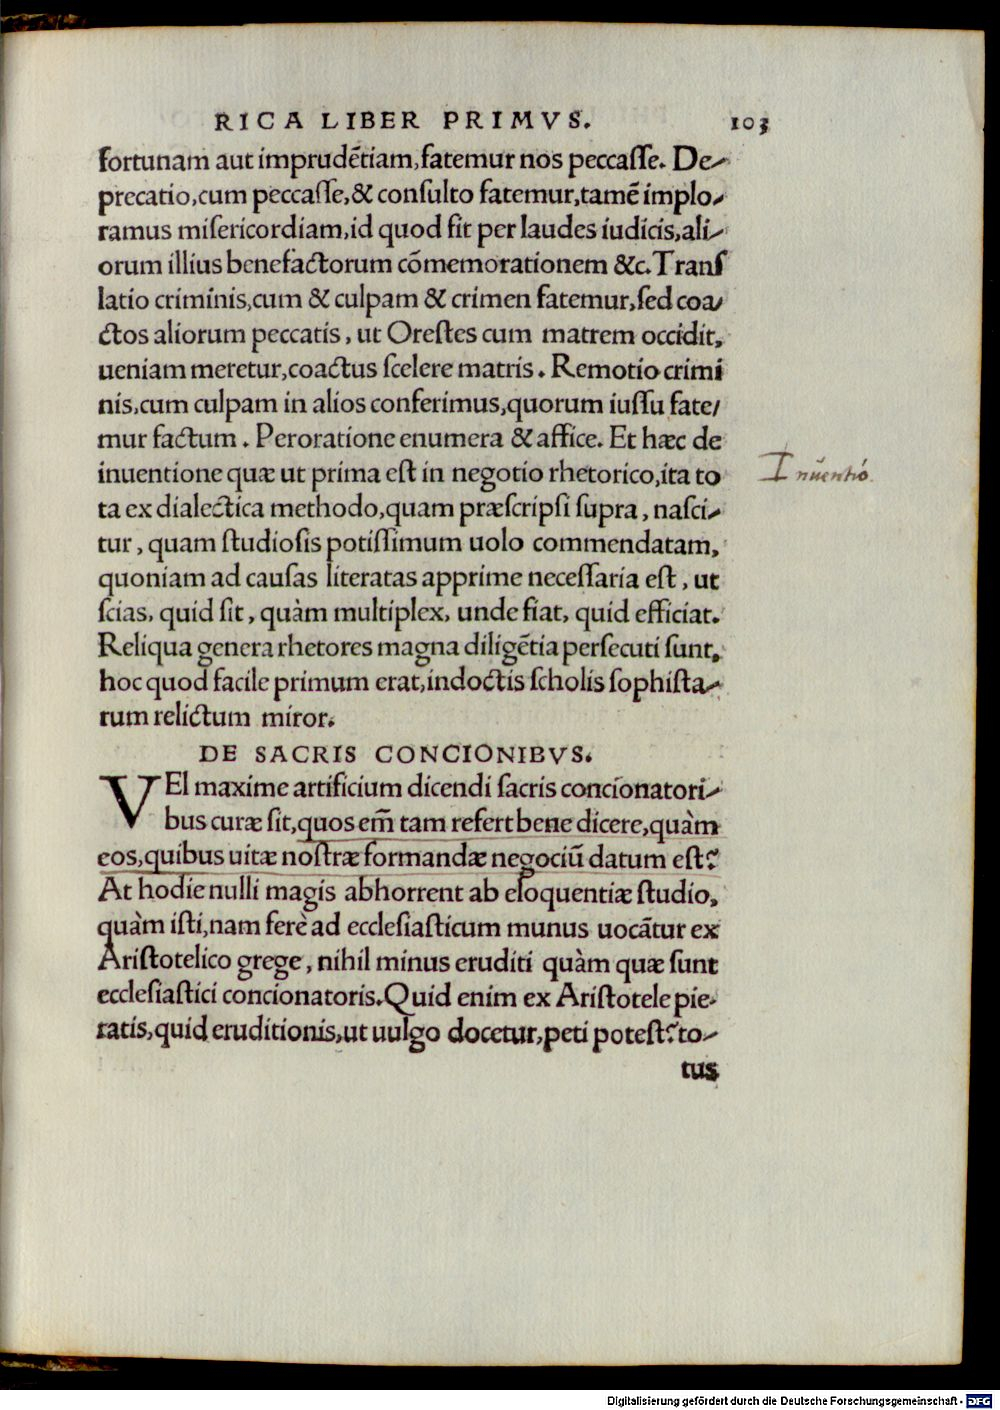 RICA LIBER PRIMVS. 103
fortunam aut imprudẽtiam,fatemur nos peccaſſe. De-
precatio,cum peccaſſe,& conſulto fatemur,tamẽ implo-
ramus miſericordiam,id quod fit per laudes iudicis,ali-
orum illius benefactorum cõmemorationem &c.Tranſ
latio criminis,cum & culpam & crimen fatemur,ſed coa-
ctos aliorum peccatis, ut Oreſtes cum matrem occidit,
ueniam meretur,coactus ſcelere matris. Remotio crimi
nis,cum culpam in alios conferimus,quorum iuſſu fate-
mur factum. Peroratione enumera & affice. Et hæc de
inuentione quæ ut prima eſt in negotio rhetorico,ita to
ta ex dialectica methodo,quam præſcripſi ſupra, naſci-
tur, quam ſtudioſis potiſſimum uolo commendatam,
quoniam ad cauſas literatas apprime neceſſaria eſt, ut
ſcias, quid ſit, quàm multiplex, unde fiat, quid efficiat.
Reliqua genera rhetores magna diligẽtia perſecuti ſunt,
hoc quod facile primum erat,indoctis ſcholis ſophiſta-
rum relictum miror.
Inuentio.
DE SACRIS CONCIONIBVS.
VEl maxime artificium dicendi ſacris concionatori-
bus curæ ſit,quos em̃ tam refert bene dicere,quàm
eos,quibus uitæ noſtræ formandæ negociũ datum eſt?
At hodie nulli magis abhorrent ab eloquentiæ ſtudio,
quàm iſti,nam ferè ad eccleſiaſticum munus uocãtur ex
Ariſtotelico grege, nihil minus eruditi quàm quæ ſunt
eccleſiaſtici concionatoris.Quid enim ex Ariſtotele pie-
tatis,quid eruditionis,ut uulgo docetur,peti poteſt?to-
tus
Digitalisierung gefördert durch die Deutsche Forschungsgemeinschaft - DFG